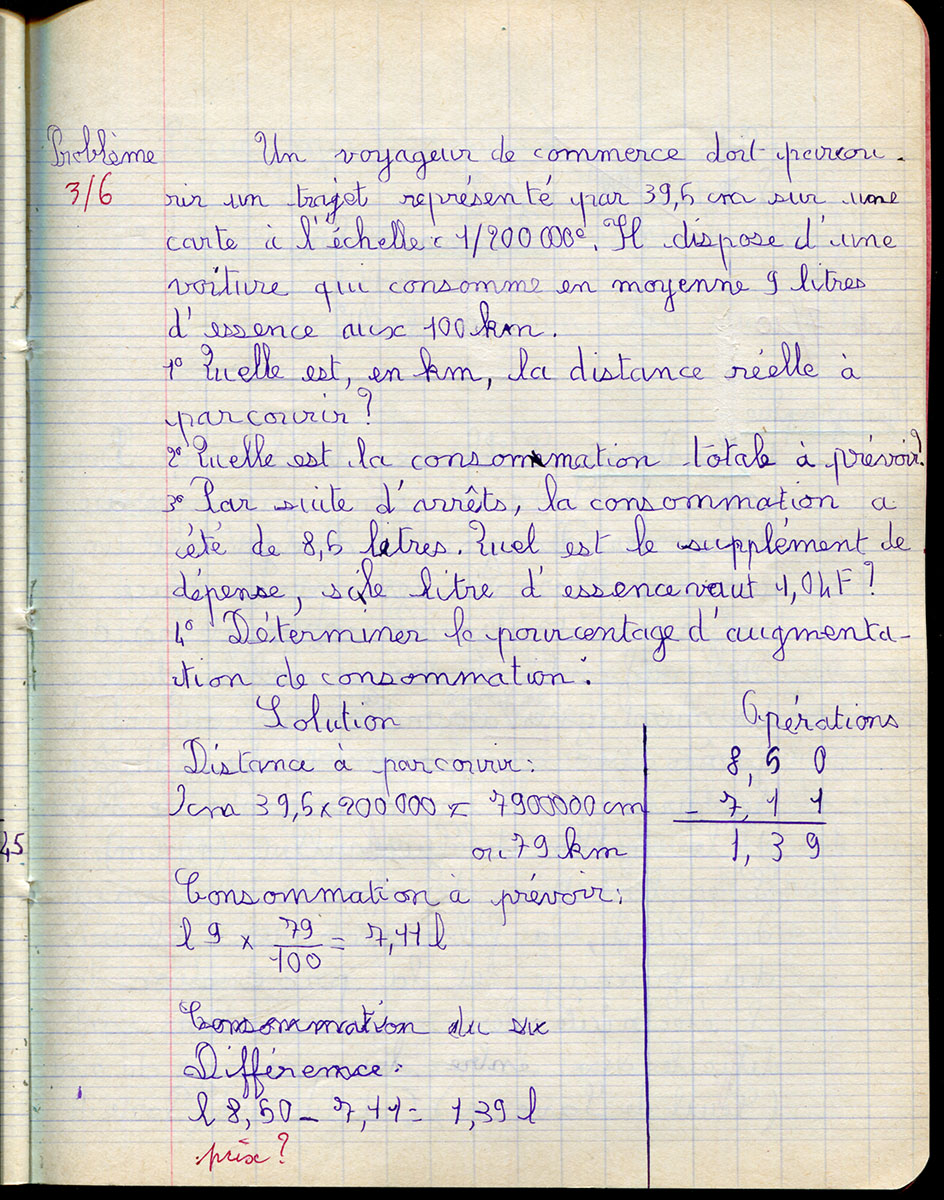 Problème
3/6
Un voyageur de commerce doit parcou-
rir un trajet représenté par 39,5 cm sur une
carte à l'échelle : 1/200 000e. Il dispose d'une
voiture qui consomme en moyenne 9 litres
d'essence aux 100 km.
1° Quelle est, en km, la distance réelle à
parcourir ?
2° Quelle est la consommation totale à prévoir ?
3° Par suite d'arrêts, la consommation a
été de 8,5 litres. Quel est le supplément de
dépense, si le litre d'essence vaut 1,04 F ?
4° Déterminer le pourcentage d'augmenta-
tion de consommation.
Solution
Distance à parcourir :
cm 39,5 x 200 000 = 7900000 cm
ou 79 km
Consommation à prévoir :
l 9 x 79/100 = 7,11 l
Consommation du
Différence :
l 8,50 - 7,11 = 1,39 l
prix ?
Opérations
8,50
- 7,11
1,39
45